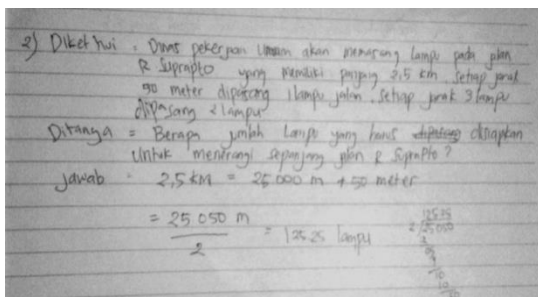 2) Diket hui : Dinas pekerjaan Umum akan memasang lampu pada jalan
R Suprapto yang memiliki panjang 2,5 km. Setiap jarak
50 meter dipasang 1 lampu jalan. Setiap jarak 3 lampu
dipasang 2 lampu
Ditanya = Berapa jumlah lampu yang harus disiapkan
Untuk menerangi sepanjang jalan R Suprapto ?
Jawab : 2,5 KM = 25 000 m + 50 meter
= 25 050 m / 2 = 125 25 lampu
125 25
2 / 25 050